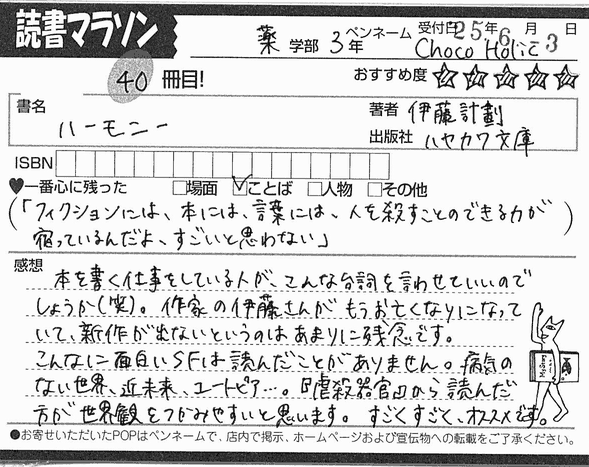 読書マラソン
薬 学部 3年 ペンネーム Choco Holic 受付日25年6月3日
40冊目! おすすめ度 ☆☆☆☆☆
書名 ハーモニー 著者 伊藤計劃
出版社 ハヤカワ文庫
ISBN
♥一番心に残った □場面 ☑ことば □人物 □その他
(「フィクションには、本には、言葉には、人を殺すことのできる力が
宿っているんだよ、すごいと思わない」)
感想
本を書く仕事をしている人が、こんな台詞を言わせていいので
しょうか(笑)。作家の伊藤さんがもうお亡くなりになって
いて、新作が出ないというのはあまりに残念です。
こんなに面白いSFは読んだことがありません。病気の
ない世界、近未来、ユートピア…。『虐殺器官』から読んだ
方が世界観をつかみやすいと思います。すごくすごく、オススメです。
●お寄せいただいたPOPはペンネームで、店内で掲示、ホームページおよび宣伝物への転載をご了承ください。